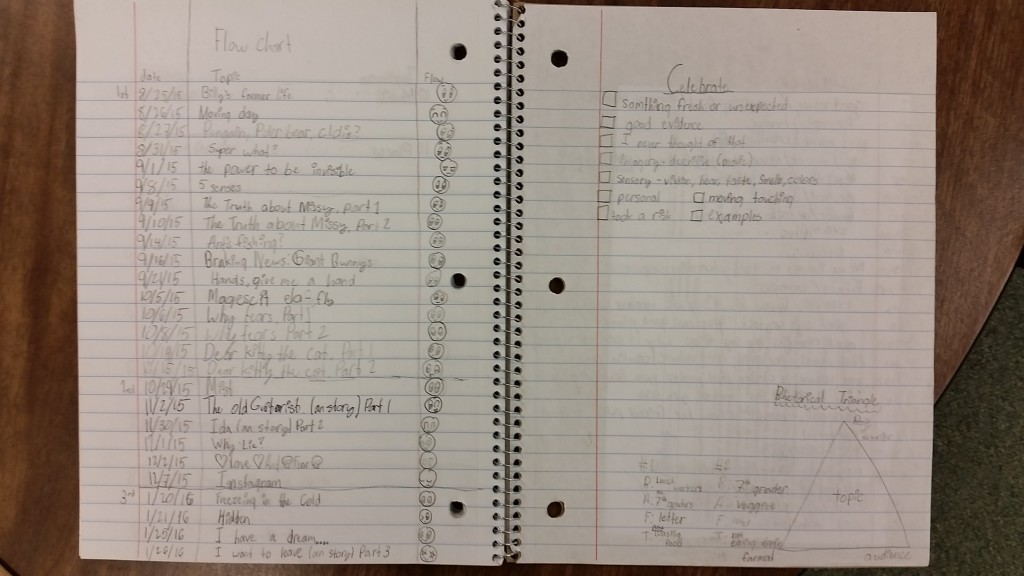 Flow chart
date Topic Flow
1st 8/25/15 Billy's former life
8/26/15 Moving day
8/27/15 Penguin, Polar bear,
8/31/15 Super what?
9/1/15 the power to be invisible
9/8/15 5 senses
9/9/15 The Truth about Missy, part 1
9/10/15 The Truth about Missy, Part 2
9/14/15 Ants fishing?
9/16/15 Braking News: Giant Bunnys
9/21/15 Hands, give me a hand
10/5/15
10/6/15 Why fears, Part 1
10/8/15 Why fears Part 2
Dear kitty the cat. Part 1
Dear kitty the cat. Part 2
2nd 10/29/15 Mist
11/2/15 The old Guitarist (an story) Part 1
11/30/15 Ida (an story) Part 2
Why Lie?
12/2/15 ♡love♡
12/7/15 Instagram
3rd 1/20/16 Freezing in the Cold
1/21/16 Hidden
1/25/16 I have a dream...
1/26/16 I want to leave (an story) Part 3
Celebrate
somthing fresh or unexpected
good evidence
I never thought of that
sensory - visible, hear, taste, smells, colors
personal moving touching
took a risk examples
Rhetorical Triangle
#1 #2
R. lunch R. 7th grader
A. 7th graders A.
F. letter F.
T. T.
food
formal
topic
audience